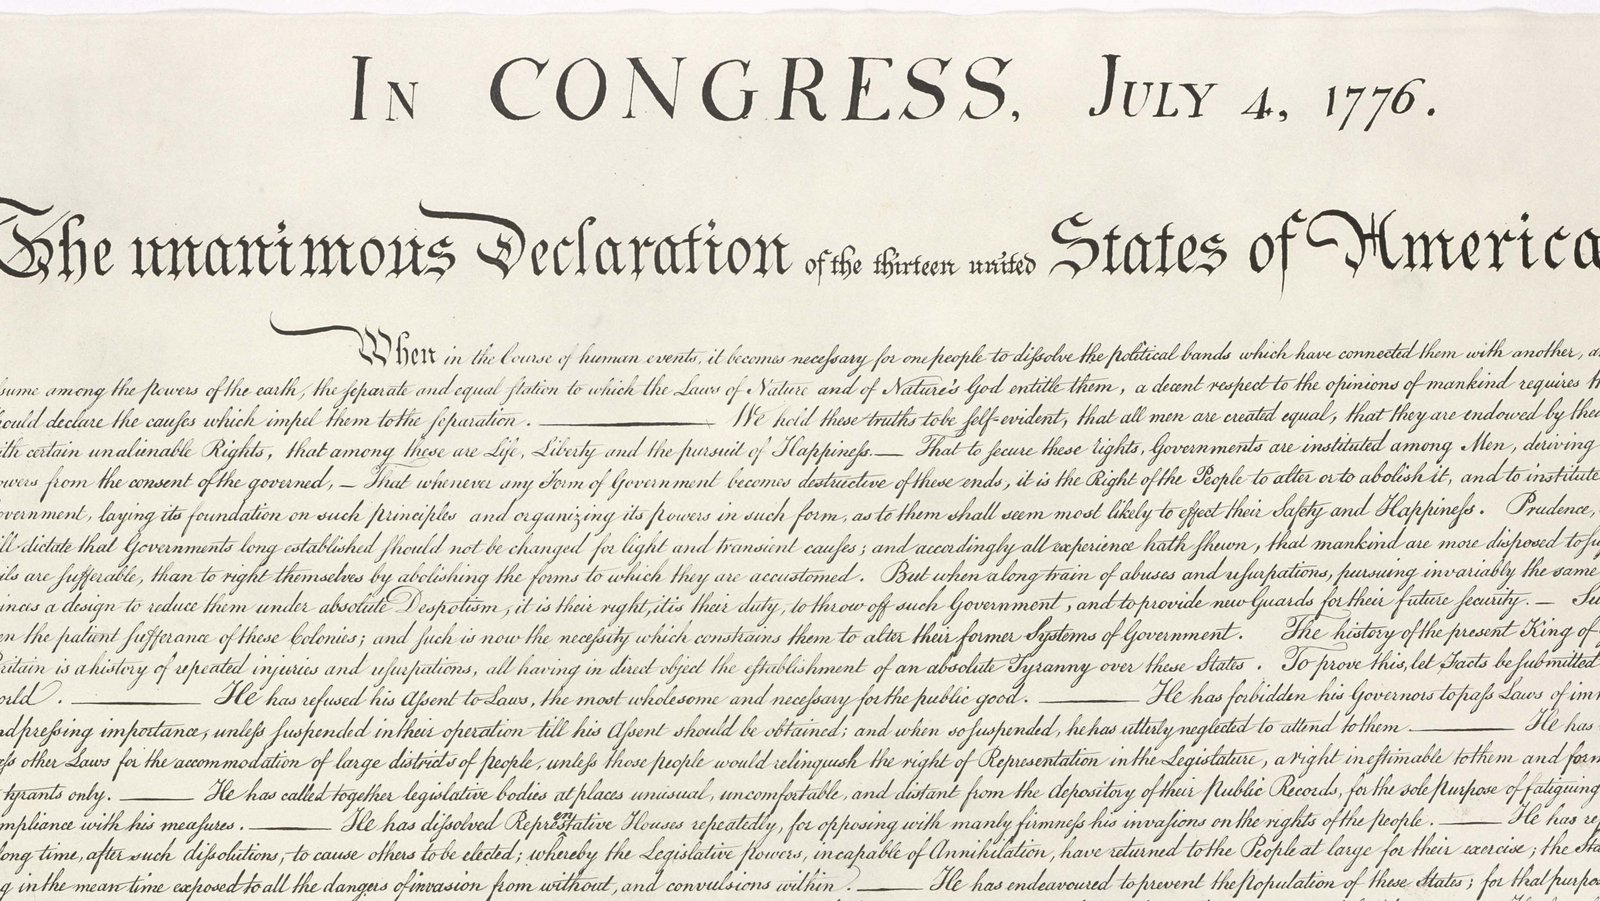 In CONGRESS, July 4, 1776.
The unanimous Declaration of the thirteen united States of America
When in the Course of human events, it becomes necessary for one people to dissolve the political bands which have connected them with another,
sume among the powers of the earth, the separate and equal station to which the Laws of Nature and of Nature's God entitle them, a decent respect to the opinions of mankind requires
should declare the causes which impel them to the separation. ——— We hold these truths to be self-evident, that all men are created equal, that they are endowed by
with certain unalienable Rights, that among these are Life, Liberty and the pursuit of Happiness. — That to secure these rights, Governments are instituted among Men, deriving
powers from the consent of the governed, — That whenever any Form of Government becomes destructive of these ends, it is the Right of the People to alter or to abolish it, and to institute
overnment, laying its foundation on such principles and organizing its powers in such form, as to them shall seem most likely to effect their Safety and Happiness. Prudence,
ill dictate that Governments long established should not be changed for light and transient causes; and accordingly all experience hath shewn, that mankind are more disposed to
ils are sufferable, than to right themselves by abolishing the forms to which they are accustomed. But when a long train of abuses and usurpations, pursuing invariably the same
inces a design to reduce them under absolute Despotism, it is their right, it is their duty, to throw off such Government, and to provide new Guards for their future security. —
en the patient sufferance of these Colonies; and such is now the necessity which constrains them to alter their former Systems of Government. The history of the present King of
Britain is a history of repeated injuries and usurpations, all having in direct object the establishment of an absolute Tyranny over these States. To prove this, let Facts be submitted
orld. ——— He has refused his Assent to Laws, the most wholesome and necessary for the public good. ——— He has forbidden his Governors to pass Laws of imm
nd pressing importance, unless suspended in their operation till his Assent should be obtained; and when so suspended, he has utterly neglected to attend to them ——— He has
ess other Laws for the accommodation of large districts of people, unless those people would relinquish the right of Representation in the Legislature, a right inestimable to them and form
tyrants only. ——— He has called together legislative bodies at places unusual, uncomfortable, and distant from the depository of their Public Records, for the sole purpose of fatiguing
mpliance with his measures. ——— He has dissolved Representative Houses repeatedly, for opposing with manly firmness his invasions on the rights of the people. ——— He has re
long time, after such dissolutions, to cause others to be elected; whereby the Legislative powers, incapable of Annihilation, have returned to the People at large for their exercise; the Sta
g in the mean time exposed to all the dangers of invasion from without, and convulsions within. ——— He has endeavoured to prevent the population of these States; for that purpos